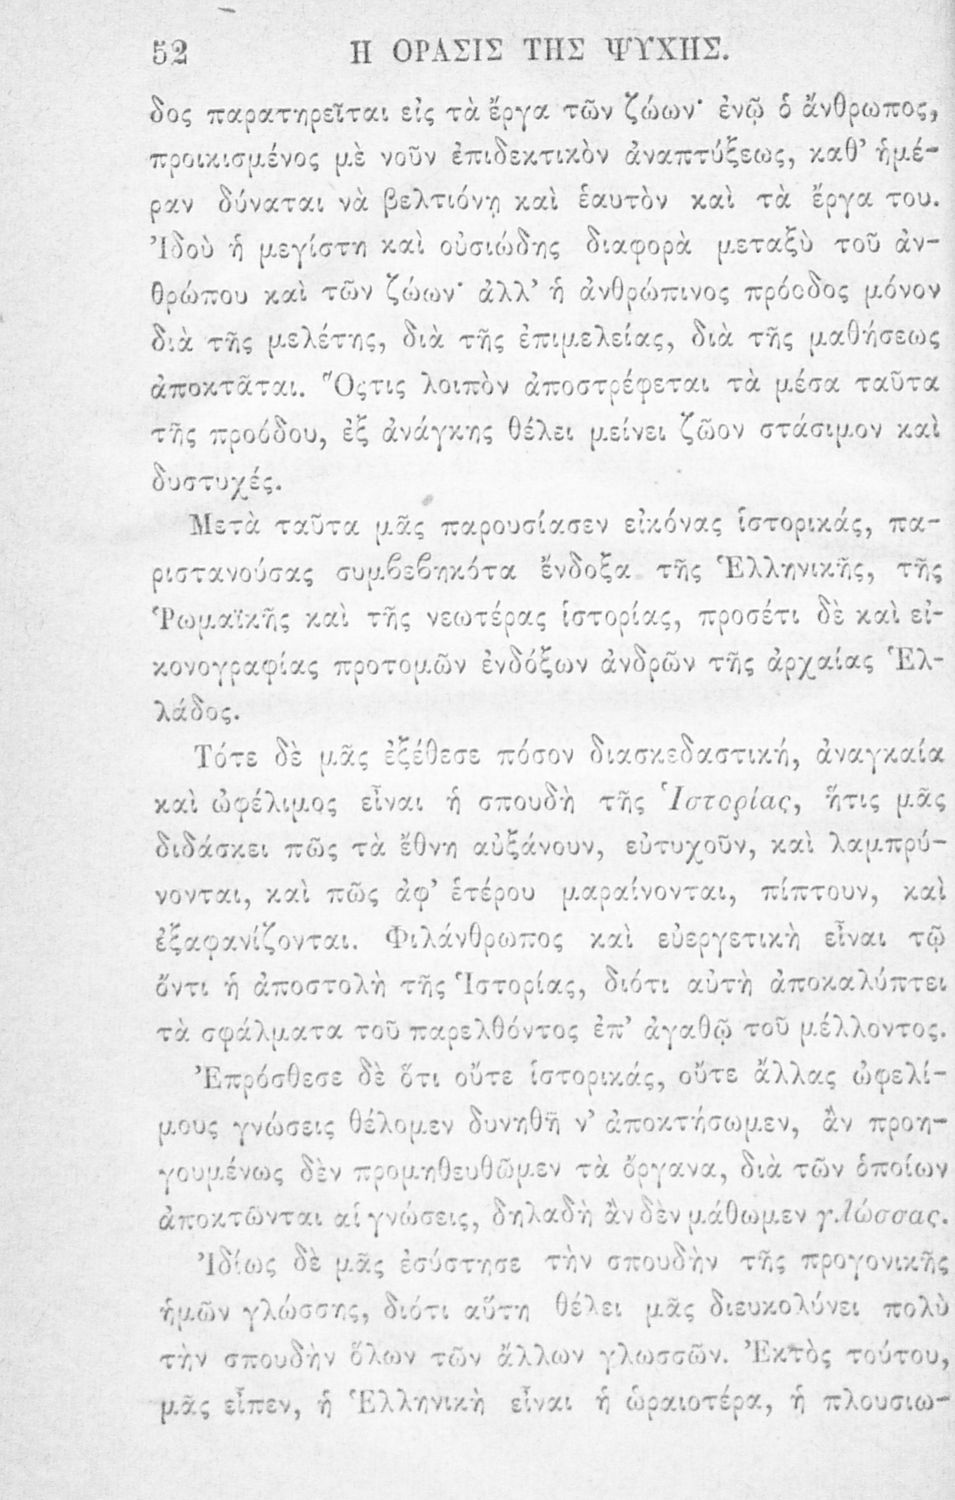 52 Η ΟΡΑΣΙΣ ΤΗΣ ΨΥΧΗΣ.
δος παρατηρεῖται εἰς τὰ ἔργα τῶν ζώων· ἐνῷ ὁ ἄνθρωπος,
προικισμένος μὲ νοῦν ἐπιδεκτικὸν ἀναπτύξεως, καθ’ ἡμέ-
ραν δύναται νὰ βελτιόνῃ καὶ ἑαυτὸν καὶ τὰ ἔργα του.
Ἰδοὺ ἡ μεγίστη καὶ οὐσιώδης διαφορὰ μεταξὺ τοῦ ἀν-
θρώπου καὶ τῶν ζώων· ἀλλ’ ἡ ἀνθρώπινος πρόοδος μόνον
διὰ τῆς μελέτης, διὰ τῆς ἐπιμελείας, διὰ τῆς μαθήσεως
ἀποκτᾶται. Ὅςτις λοιπὸν ἀποστρέφεται τὰ μέσα ταῦτα
τῆς προόδου, ἐξ ἀνάγκης θέλει μείνει ζῶον στάσιμον καὶ
δυστυχές.
Μετὰ ταῦτα μᾶς παρουσίασεν εἰκόνας ἱστορικάς, πα-
ριστανούσας συμϐεϐηκότα ἔνδοξα τῆς Ἑλληνικῆς, τῆς
Ῥωμαϊκῆς καὶ τῆς νεωτέρας ἱστορίας, προσέτι δὲ καὶ εἰ-
κονογραφίας προτομῶν ἐνδόξων ἀνδρῶν τῆς ἀρχαίας Ἑλ-
λάδος.
Τότε δὲ μᾶς ἐξέθεσε πόσον διασκεδαστική, ἀναγκαία
καὶ ὠφέλιμος εἶναι ἡ σπουδὴ τῆς Ἱστορίας, ἥτις μᾶς
διδάσκει πῶς τὰ ἔθνη αὐξάνουν, εὐτυχοῦν, καὶ λαμπρύ-
νονται, καὶ πῶς ἀφ’ ἑτέρου μαραίνονται, πίπτουν, καὶ
ἐξαφανίζονται. Φιλάνθρωπος καὶ εὐεργετικὴ εἶναι τῷ
ὄντι ἡ ἀποστολὴ τῆς Ἱστορίας, διότι αὐτὴ ἀποκαλύπτει
τὰ σφάλματα τοῦ παρελθόντος ἐπ’ ἀγαθῷ τοῦ μέλλοντος.
Ἐπρόσθεσε δὲ ὅτι οὔτε ἱστορικάς, οὔτε ἄλλας ὠφελί-
μους γνώσεις θέλομεν δυνηθῆ ν’ ἀποκτήσωμεν, ἂν προη-
γουμένως δὲν προμηθευθῶμεν τὰ ὄργανα, διὰ τῶν ὁποίων
ἀποκτῶνται αἱ γνώσεις, δηλαδὴ ἂν δὲν μάθωμεν γλώσσας.
Ἰδίως δὲ μᾶς ἐσύστησε τὴν σπουδὴν τῆς προγονικῆς
ἡμῶν γλώσσης, διότι αὕτη θέλει μᾶς διευκολύνει πολὺ
τὴν σπουδὴν ὅλων τῶν ἄλλων γλωσσῶν. Ἐκτὸς τούτου,
μᾶς εἶπεν, ἡ Ἑλληνικὴ εἶναι ἡ ὡραιοτέρα, ἡ πλουσιω-